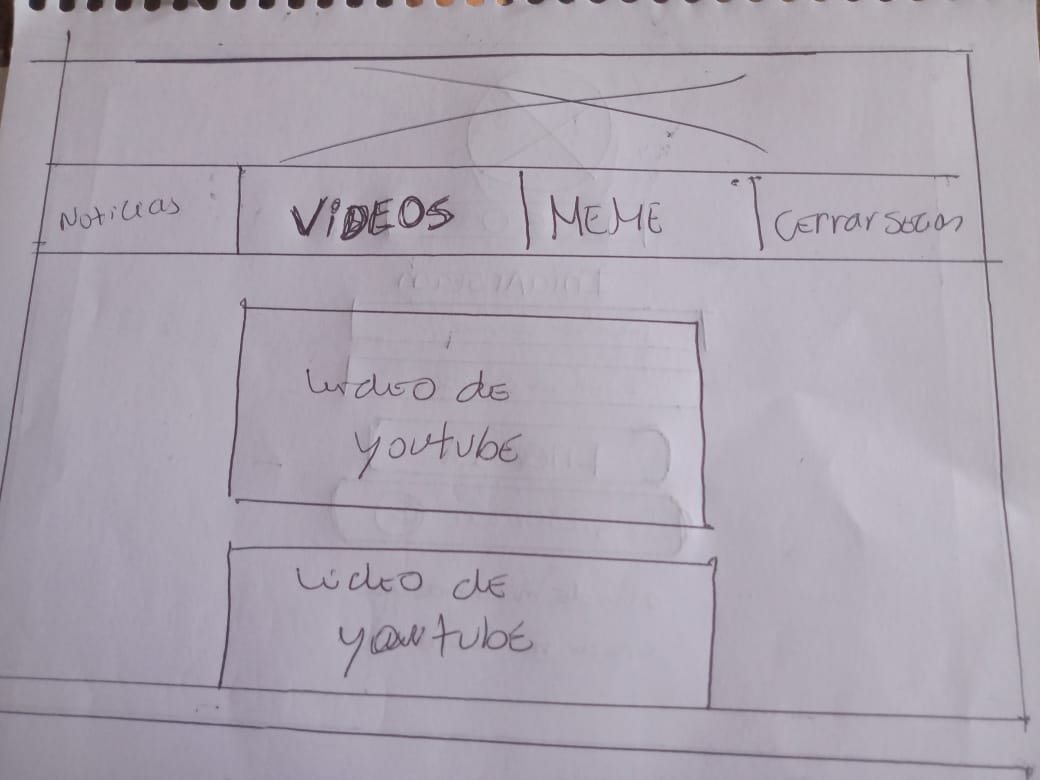 Noticias
VIDEOS
MEME
Cerrar Secion
video de
youtube
video de
youtube